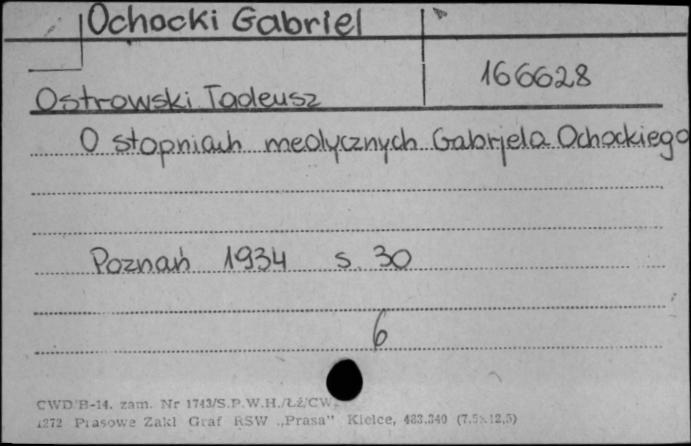 Ochocki Gabriel
166628
Ostrowski Tadeusz
O stopniach medycznych Gabrjela Ochockiego
Poznań 1934 s. 30
6
CWD B-14. zam. Nr 1743/S.P.W.H./Łź/CW
1272 Prasowe Zakl Graf RSW „Prasa" Kielce, 483.340 (7,5x12,5)